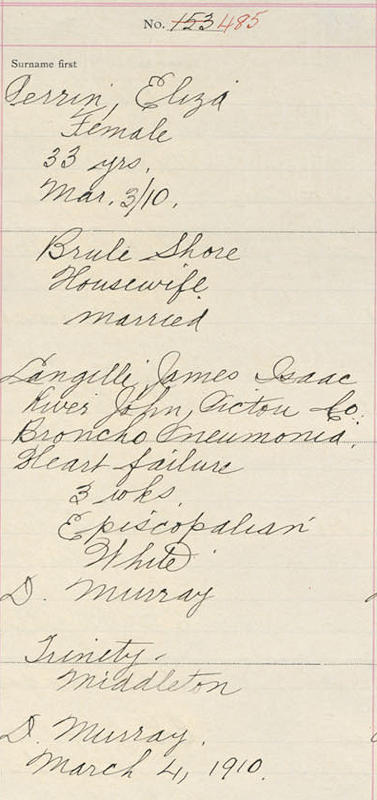 No. 153 485
Surname first
Perrin, Eliza
Female
33 yrs.
Mar. 3/10.
Brule Shore
Housewife
Married
Langille, James Isaac
River John, Pictou Co.
Broncho Pneumonia.
Heart failure
3 wks.
Episcopalian
White
D. Murray
Trinity.
Middleton
D. Murray.
March 4, 1910.